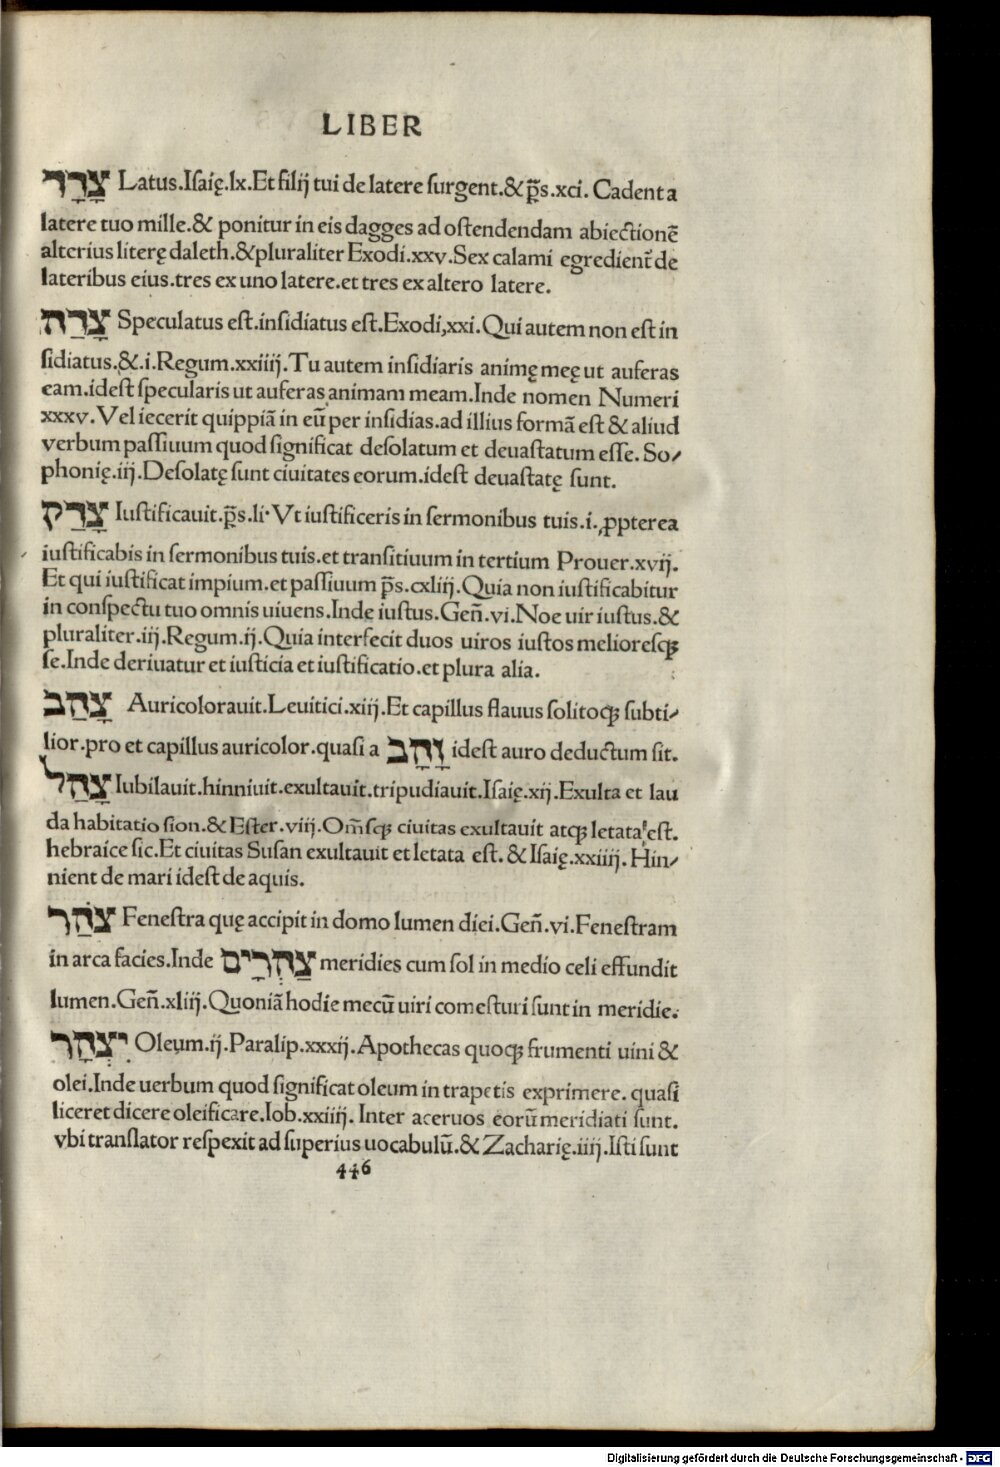 LIBER
צָדַד Latus.Iſaię.lx.Et filij tui de latere ſurgent.&p̄s.xci. Cadent a
latere tuo mille.& ponitur in eis dagges ad oſtendendam abiectionē
alterius literę daleth.&pluraliter Exodi.xxv.Sex calami egredient̄ de
lateribus eius.tres ex uno latere.et tres ex altero latere.
צָדָה Speculatus eſt.inſidiatus eſt.Exodi,xxi.Qui autem non eſt in
ſidiatus.&.i.Regum.xxiiij.Tu autem inſidiaris animę meę ut auferas
eam.ideſt ſpecularis ut auferas animam meam.Inde nomen Numeri
xxxv.Vel iecerit quippiā in eū per inſidias.ad illius formā eſt & aliud
verbum paſſiuum quod ſignificat deſolatum et deuaſtatum eſſe. So/
phonię.iij.Deſolatę ſunt ciuitates eorum.ideſt deuaſtatę ſunt.
צָדַק Iuſtificauit.p̄s.li.Vt iuſtificeris in ſermonibus tuis.i.ꝓpterea
iuſtificabis in ſermonibus tuis.et tranſitiuum in tertium Prouer.xvij.
Et qui iuſtificat impium.et paſſiuum p̄s.cxliij.Quia non iuſtificabitur
in conſpectu tuo omnis uiuens.Inde iuſtus.Geñ.vi.Noe uir iuſtus.&
pluraliter.iij.Regum.ij.Quia interfecit duos uiros iuſtos melioreſqꝫ
ſe.Inde deriuatur et iuſticia et iuſtificatio.et plura alia.
צָהַב Auricolorauit.Leuitici.xiij.Et capillus flauus ſolitoqꝫ ſubti/
lior.pro et capillus auricolor.quaſi a זָהָב ideſt auro deductum ſit.
צָהַל Iubilauit.hinniuit.exultauit.tripudiauit.Iſaię.xij.Exulta et lau
da habitatio ſion.& Eſter.viij.Om̄ſqꝫ ciuitas exultauit atqꝫ letata eſt.
hebraice ſic.Et ciuitas Suſan exultauit et letata eſt.& Iſaię.xxiiij. Hin/
nient de mari ideſt de aquis.
צֹהַר Feneſtra quę accipit in domo lumen diei.Geñ.vi.Feneſtram
in arca facies.Inde צָהֳרָיִם meridies cum ſol in medio celi effundit
lumen.Geñ.xliij.Quoniā hodie mecū uiri comeſturi ſunt in meridie.
יִצְהָר Oleum.ij.Paralip.xxxij.Apothecas quoqꝫ frumenti uini &
olei.Inde uerbum quod ſignificat oleum in trapetis exprimere. quaſi
liceret dicere oleificare.Iob.xxiiij. Inter aceruos eorū meridiati ſunt.
vbi tranſlator reſpexit ad ſuperius uocabulū.& Zacharię.iiij.Iſti ſunt
446
Digitalisierung gefördert durch die Deutsche Forschungsgemeinschaft - DFG